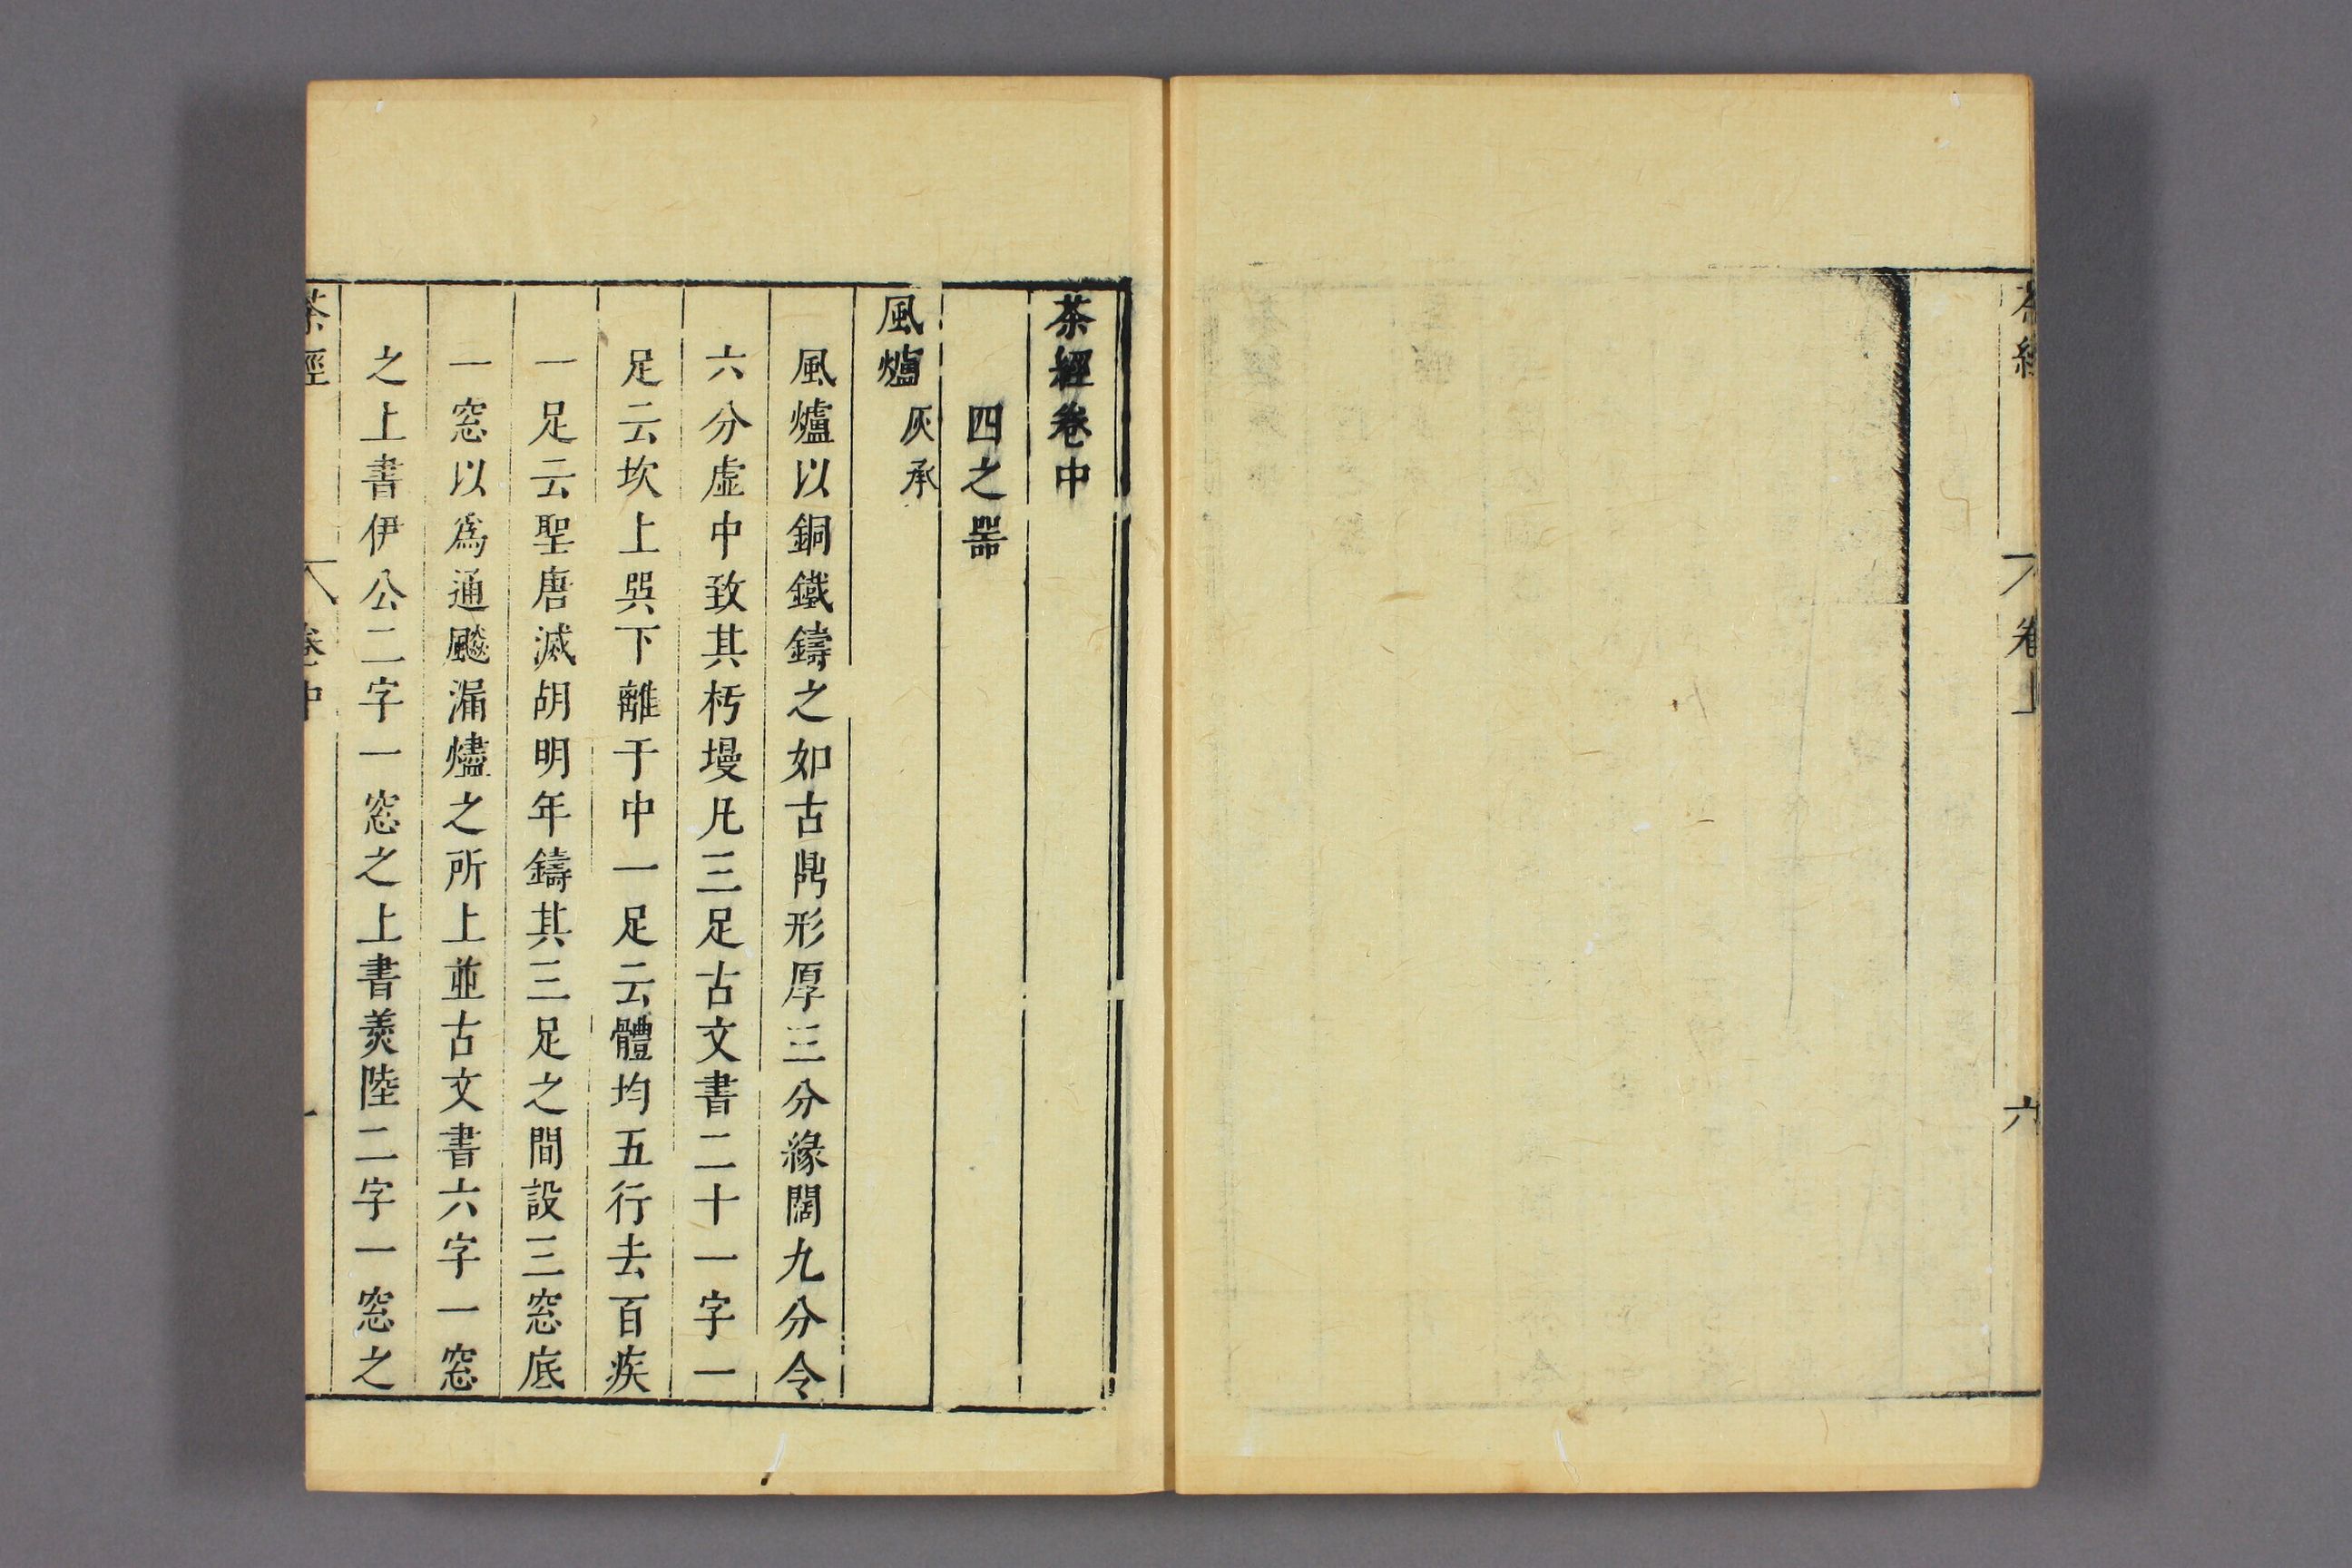 茶經 卷上 六
茶經卷中
四之器
風爐 灰承
風爐以銅鐵鑄之如古鼎形厚三分緣闊九分令
六分虛中致其杇墁凡三足古文書二十一字一
足云坎上巽下離于中一足云體均五行去百疾
一足云聖唐滅胡明年鑄其三足之間設三窓底
一窓以爲通飈漏燼之所上並古文書六字一窓
之上書伊公二字一窓之上書羮陸二字一窓之
茶經 卷中 一